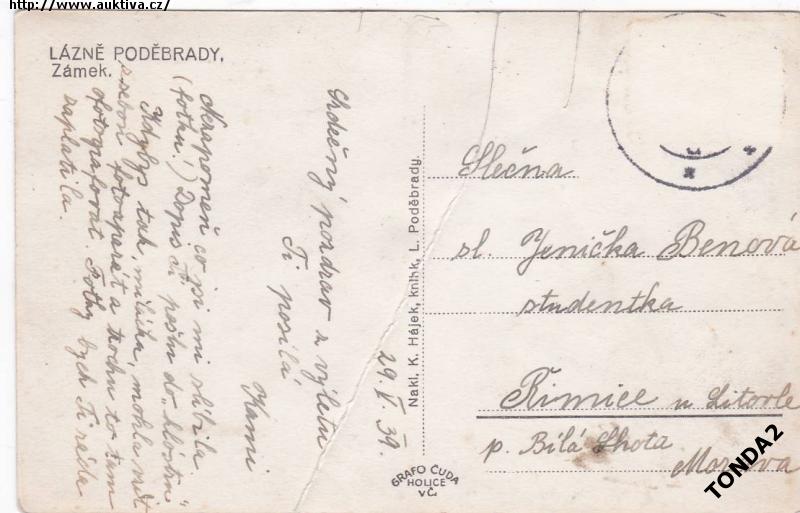 http://www.auktiva.cz/
LÁZNĚ PODĚBRADY,
Zámek.
Srdečný pozdrav z výletu
Ti posílá
Hami
29. V. 39.
Nezapomeň co jsi mi slíbila
(fotku!) Dopis Ti pošlu do „kláštní"
Kdybys tak, miláčku, mohla mít
s sebou fotoaparát a trochu to tam
ofotografovat. Fotky bych Ti ráda
zaplatila.
Nakl. K. Hájek, knihk, L. Poděbrady.
GRAFO ČUDA
HOLICE
VČ.
Slečna
sl. Jenička Benová
studentka
Řimice u Litovle
p. Bílá Lhota
Morava
TONDA2